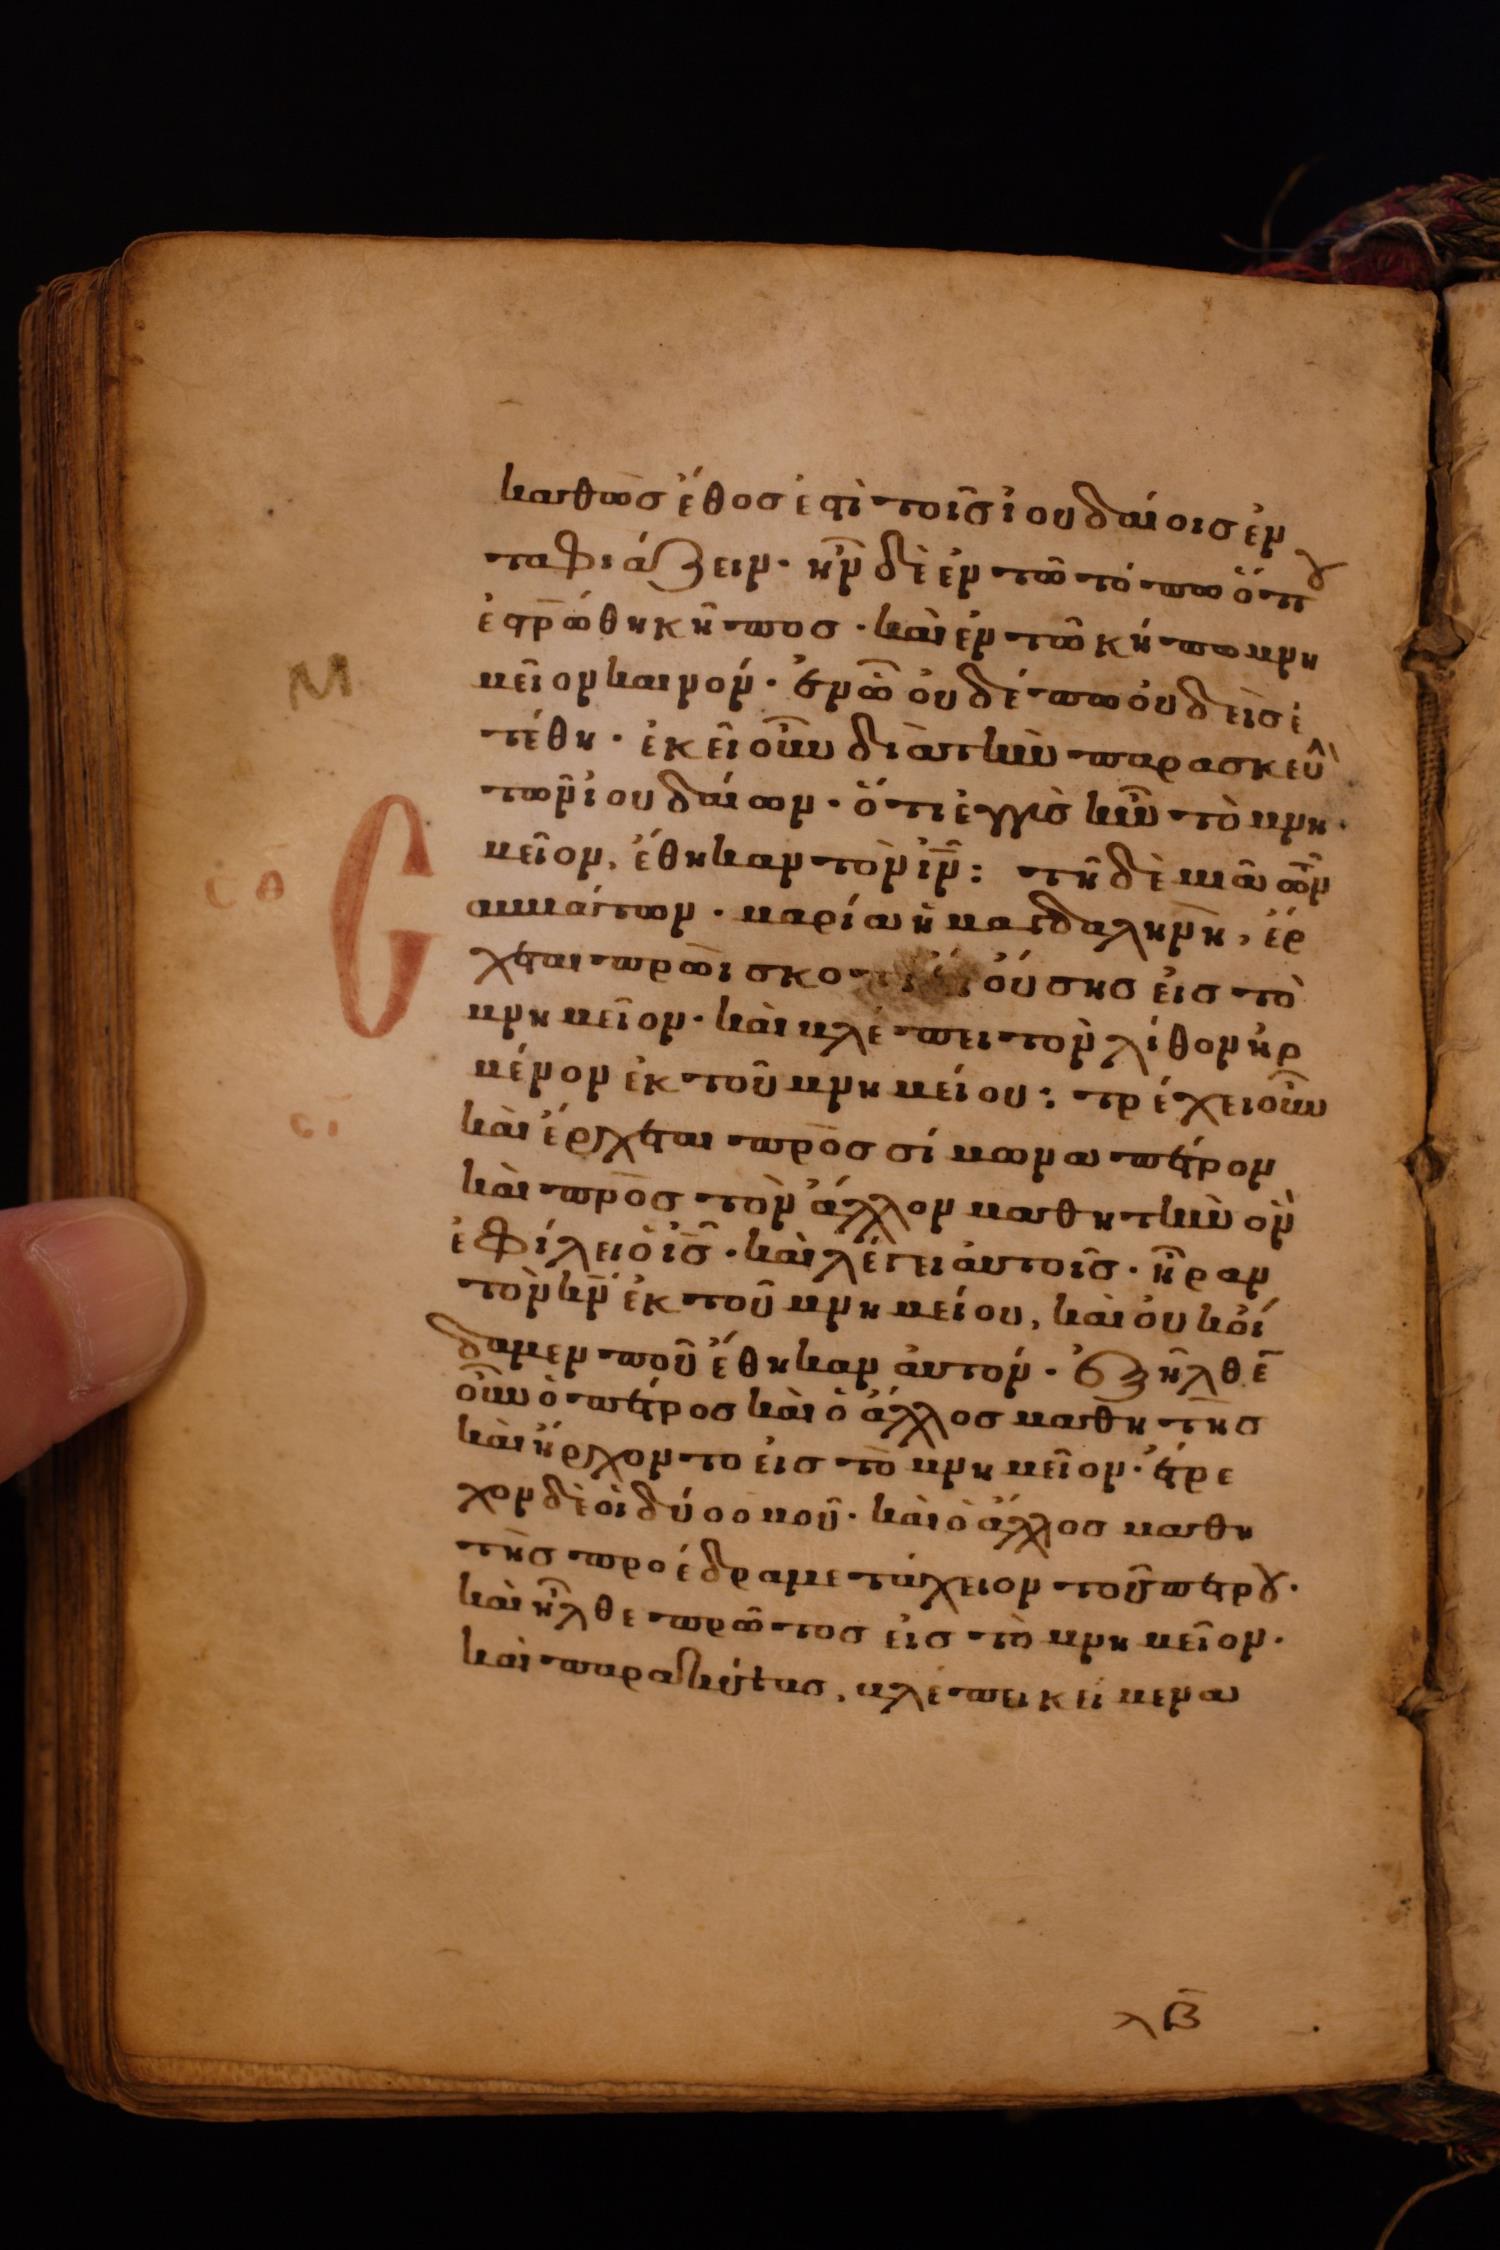 καθὼσ ἔθοσ ἐστὶ τοῖσ ἰουδαίοισ ἐν
ταφιάζειν· ἦν δὲ ἐν τῶ τόπω ὅπου
ἐστρώθη κῆποσ · καὶ ἐν τῶ κήπω μνη
μεῖον καινόν· ἐν ῶ οὐδέπω οὐδεὶσ ἐ
τέθη · ἐκεῖ οὖν διὰ τὴν παρασκευὴ
τῶν ἰουδαίων · ὅτι ἐγγὺσ ἦν τὸ μνη
μεῖον, ἔθηκαν τὸν ιν̅ : τῆ δὲ μιᾶ τῶν
σαββάτων · μαρία ἡ μαγδαληνὴ, ἔρ
χεται πρωῒ σκο οὔσησ εἰσ τὸ
μνημεῖον· καὶ βλέπει τὸν λίθον ἠρ
μένον ἐκ τοῦ μνημείου : τρέχει οὖν
καὶ ἔρχεται πρὸσ σίμωνα πέτρον
καὶ πρὸσ τὸν ἄλλον μαθητὴν ὃν
ἐφίλει ὁ ισ̅ · καὶ λέγει αὐτοῖσ · ἦραν
τὸν κν̅ ἐκ τοῦ μνημείου, καὶ οὐκ οἴ
δαμεν ποῦ ἔθηκαν αὐτόν · ἐξῆλθε̅
οὖν ὁ πέτροσ καὶ ὁ ἄλλοσ μαθητὴσ
καὶ ἤρχοντο εἰσ τὸ μνημεῖον · ἔτρε
χον δὲ οἱ δύο ὁμοῦ · καὶ ὁ ἄλλοσ μαθη
τὴσ προέδραμε τάχειον τοῦ πέτρου·
καὶ ἦλθε πρῶτοσ εἰσ τὸ μνημεῖον·
καὶ παρακύψασ, βλέπει κείμενα
λβ̅